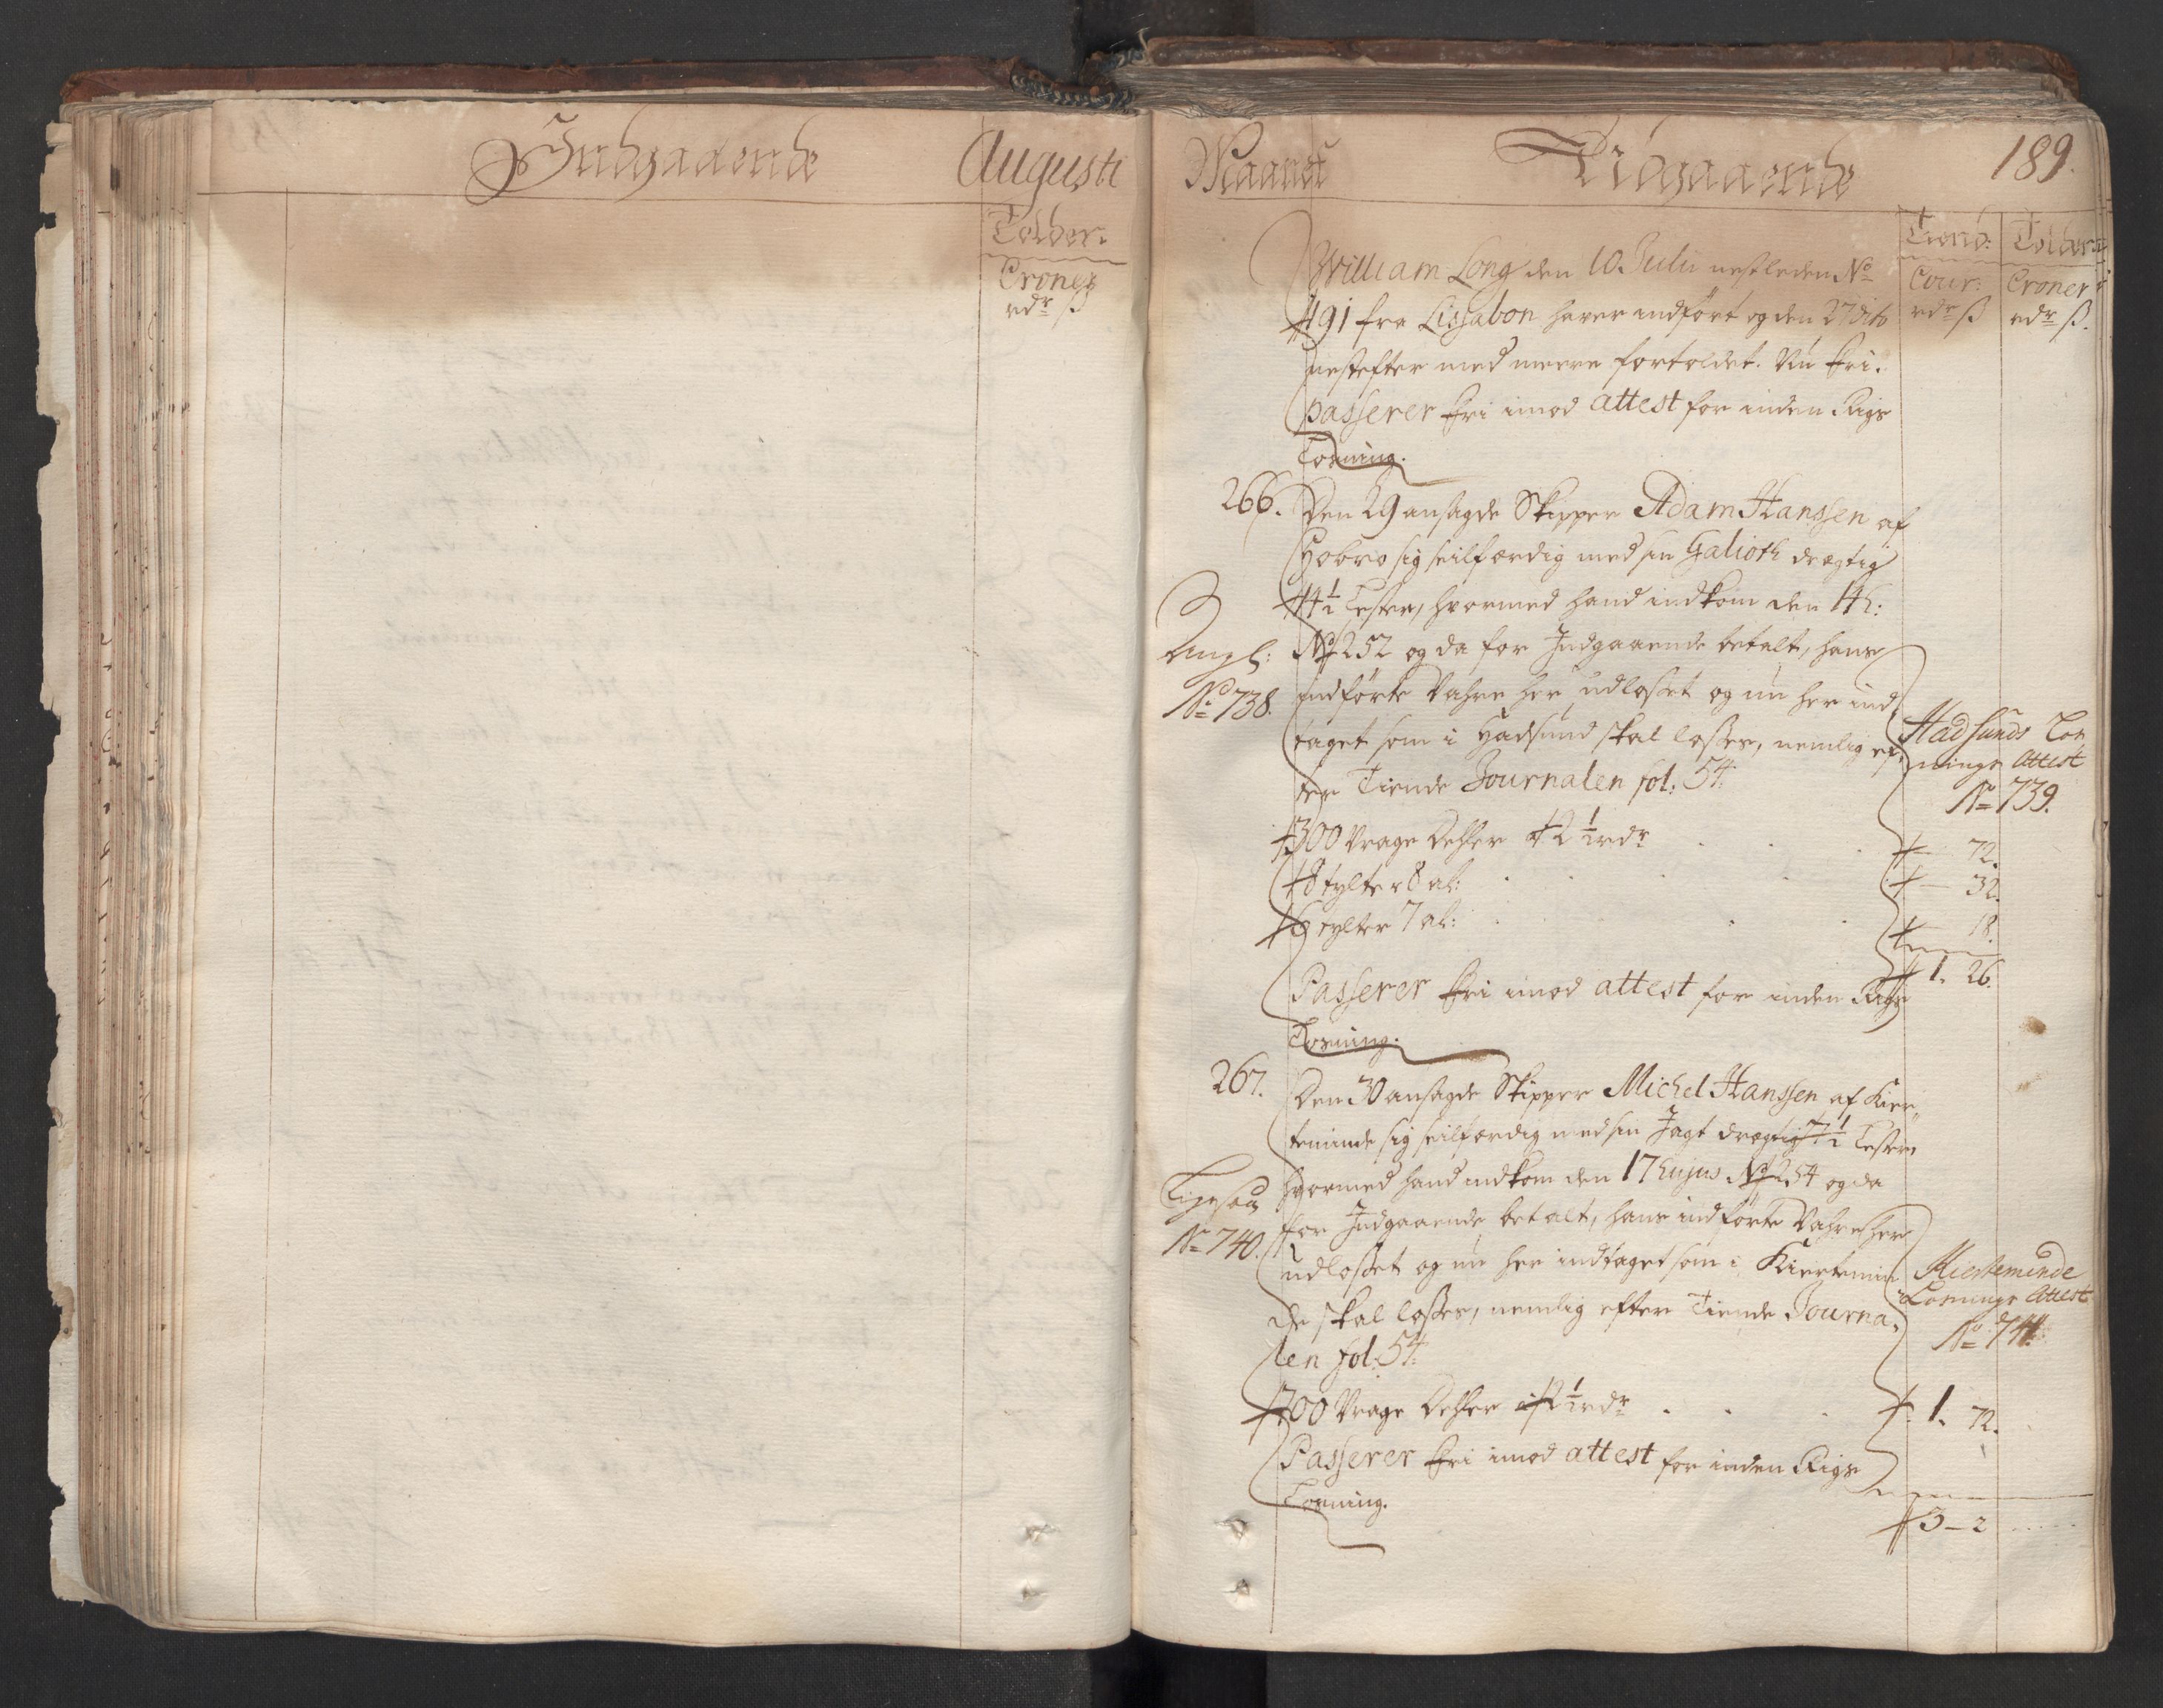 Indgaaende Augusti
Tolder.
Croner
rdr ß
Maanet Udgaaende 189.
Tiend: Tolder
Cour: Croner
rdr ß rdr ß.
William Long den 10 Julii nestleden No
491 fra Lissabon haver indført og den 27 dito
nestefter med meere fortoldet. Nu fri.
passerer fri imod attest for inden Rigs
Losning.
266. Den 29 ansagde Skipper Adam Hanssen af
Hobro sig seilfærdig med sin Galioth drægtig
14½ Lester, hvormed hand indkom den 14 h:
No 252 og da for Indgaaende betalt, hans
Angl:
No 738.
indførte Vahre her udlosset og nu her ind,
taget som i Hadsund skal losses, nemlig ef,
ter Tiende Journalen fol: 54.
Hadsunds Los
nings Attest
No 739.
300 Vrage Dehler 2½ rdr 72.
8 tylter 8 al: 32.
6 tylter 7 al: 18.
1. 26.
Passerer fri imod attest for inden Rigs
Losning.
267. Den 30 ansagde Skipper Michel Hanssen af Kier,,
teminde sig seilfærdig med sin Jagt drægtig 7½ Lester
hvormed hand indkom den 17 hujus No 254 og da
Ligesaa
No 740.
for Indgaaende betalt, hans indførte Vahre her
udlosset og nu her indtaget som i Kiertemin
de skal losses, nemlig efter Tiende Journa,
len fol: 54.
Kierteminde
Losnings Attest
No 741.
700 Vrage Dehler 2½ rdr 1. 72.
Passerer fri imod attest for inden Rigs
Losning.
3 - 2